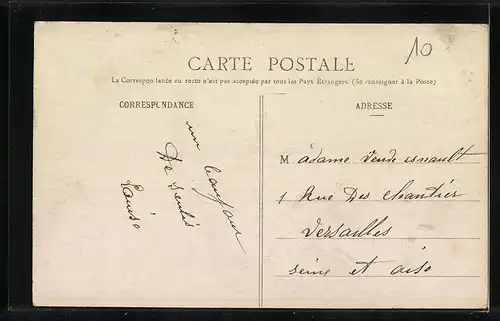 CARTE POSTALE
La Correspondance au recto n'est pas acceptée par tous les Pays Étrangers. (Se renseigner à la Poste)
10
CORRESPONDANCE
un bonjour
De Senlis
Louise
ADRESSE
Madame Vendeesnault
1 Rue Des Chantier
Versailles
seine et oise